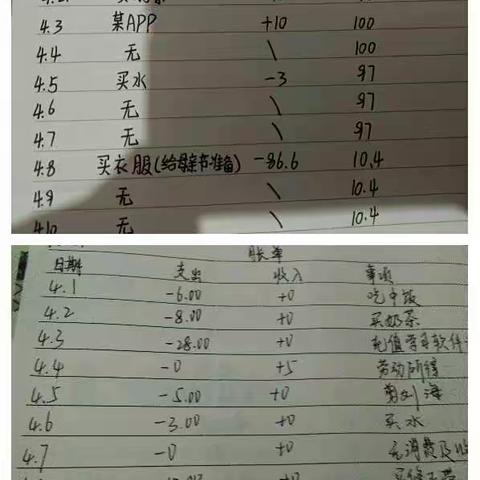 4.3 某APP +10 100
4.4 无 \ 100
4.5 买水 -3 97
4.6 无 \ 97
4.7 无 \ 97
4.8 买衣服(给母亲节准备) -86.6 10.4
4.9 无 \ 10.4
4.10 无 \ 10.4
账单
日期 支出 收入 事项
4.1 -6.00 +0 吃中饭
4.2 -8.00 +0 买奶茶
4.3 -28.00 +0 充值学习软件
4.4 -0 +5 劳动所得
4.5 -5.00 +0 剪刘海
4.6 -3.00 +0 买水
4.7 -0 +0 无消费及收